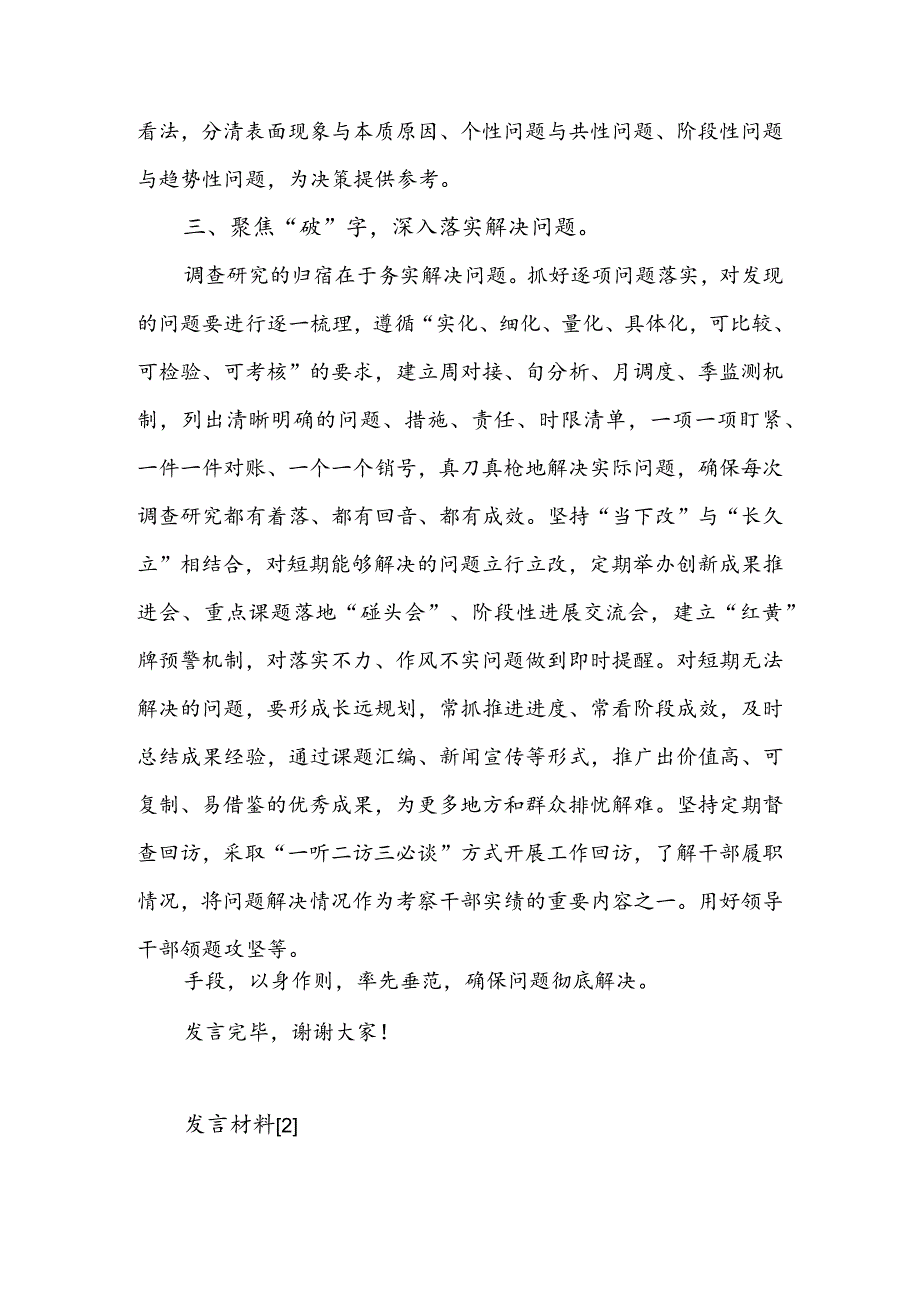 看法，分清表面现象与本质原因、个性问题与共性问题、阶段性问题
与趋势性问题，为决策提供参考。
三、聚焦“破”字，深入落实解决问题。
调查研究的归宿在于务实解决问题。抓好逐项问题落实，对发现
的问题要进行逐一梳理，遵循“实化、细化、量化、具体化，可比较、
可检验、可考核”的要求，建立周对接、旬分析、月调度、季监测机
制，列出清晰明确的问题、措施、责任、时限清单，一项一项盯紧、
一件一件对账、一个一个销号，真刀真枪地解决实际问题，确保每次
调查研究都有着落、都有回音、都有成效。坚持“当下改”与“长久
立”相结合，对短期能够解决的问题立行立改，定期举办创新成果推
进会、重点课题落地“碰头会”、阶段性进展交流会，建立“红黄”
牌预警机制，对落实不力、作风不实问题做到即时提醒。对短期无法
解决的问题，要形成长远规划，常抓推进进度、常看阶段成效，及时
总结成果经验，通过课题汇编、新闻宣传等形式，推广出价值高、可
复制、易借鉴的优秀成果，为更多地方和群众排忧解难。坚持定期督
查回访，采取“一听二访三必谈”方式开展工作回访，了解干部履职
情况，将问题解决情况作为考察干部实绩的重要内容之一。用好领导
干部领题攻坚等。
手段，以身作则，率先垂范，确保问题彻底解决。
发言完毕，谢谢大家！
发言材料[2]